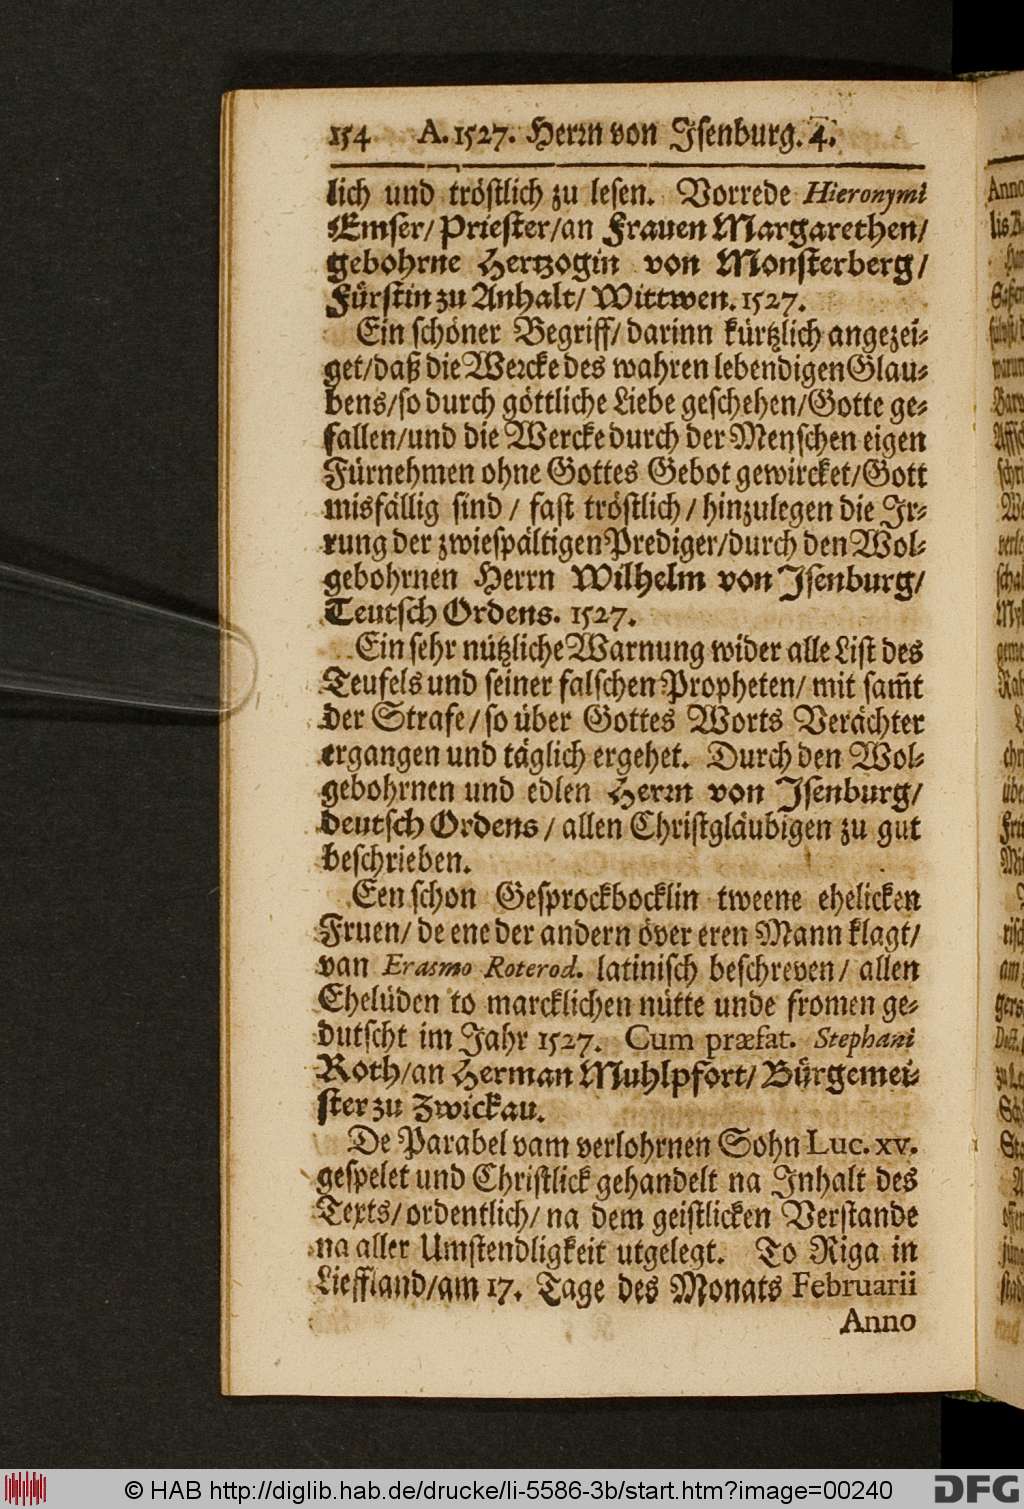 154 A. 1527. Herrn von Isenburg. 4.
lich und tröstlich zu lesen. Vorrede Hieronymi
Emser/ Priester/ an Frauen Margarethen/
gebohrne Hertzogin von Monsterberg/
Fürstin zu Anhalt/ Wittwen. 1527.
Ein schöner Begriff/ darinn kürtzlich angezei-
get/ daß die Wercke des wahren lebendigen Glau-
bens/ so durch göttliche Liebe geschehen/ Gotte ge-
fallen/ und die Wercke durch der Menschen eigen
Fürnehmen ohne Gottes Gebot gewircket/ Gott
misfällig sind/ fast tröstlich/ hinzulegen die Ir-
rung der zwiespältigen Prediger/ durch den Wol-
gebohrnen Herrn Wilhelm von Isenburg/
Teutsch Ordens. 1527.
Ein sehr nützliche Warnung wider alle List des
Teufels und seiner falschen Propheten/ mit sam̃t
der Strafe/ so über Gottes Worts Verächter
ergangen und täglich ergehet. Durch den Wol-
gebohrnen und edlen Herrn von Isenburg/
deutsch Ordens/ allen Christgläubigen zu gut
beschrieben.
Een schon Gesprockbocklin tweene ehelicken
Fruen/ de ene der andern över eren Mann klagt/
van Erasmo Roterod. latinisch beschreven/ allen
Ehelüden to marcklichen nütte unde fromen ge-
dutscht im Jahr 1527. Cum præfat. Stephani
Roth/ an Herman Muhlpfort/ Bürgemei-
ster zu Zwickau.
De Parabel vam verlohrnen Sohn Luc. xv.
gespelet und Christlick gehandelt na Inhalt des
Texts/ ordentlich/ na dem geistlicken Verstande
na aller Umstendligkeit utgelegt. To Riga in
Lieffland/ am 17. Tage des Monats Februarii
Anno
© HAB http://diglib.hab.de/drucke/li-5586-3b/start.htm?image=00240
DFG